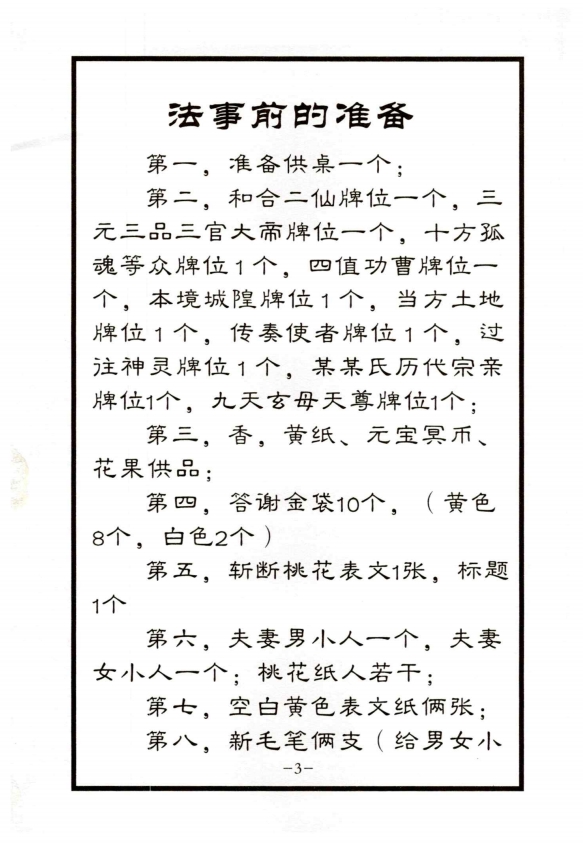 法事前的准备
第一，准备供桌一个；
第二，和合二仙牌位一个，三
元三品三官大帝牌位一个，十方孤
魂等众牌位1个，四值功曹牌位一
个，本境城隍牌位1个，当方土地
牌位1个，传奏使者牌位1个，过
往神灵牌位1个，某某氏历代宗亲
牌位1个，九天玄母天尊牌位1个；
第三，香，黄纸、元宝冥币、
花果供品；
第四，答谢金袋10个，（黄色
8个，白色2个）
第五，斩断桃花表文1张，标题
1个
第六，夫妻男小人一个，夫妻
女小人一个；桃花纸人若干；
第七，空白黄色表文纸俩张；
第八，新毛笔俩支（给男女小
-3-